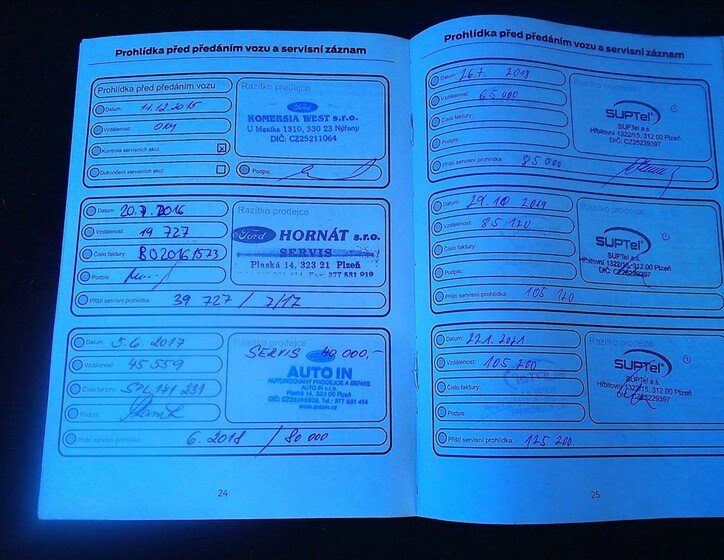 Prohlídka před předáním vozu a servisní záznam
Prohlídka před předáním vozu
Datum: 11.12.2015
Vzdálenost: 0km
Kontrola servisních akcí:
Dokončení servisních akcí:
Razítko prodejce
Ford
KOMERSIA WEST s.r.o.
U Mexika 1310, 330 23 Nýřany
DIČ: CZ25211064
Podpis:
Datum: 20.7.2016
Vzdálenost: 19 727
Číslo faktury: BO20161573
Podpis:
Příští servisní prohlídka: 39 727 / 7/17
Razítko prodejce
Ford HORNÁT s.r.o.
SERVIS
Plaská 14, 323 21 Plzeň
Fax: 377 531 919
Datum: 5.6.2017
Vzdálenost: 45 559
Číslo faktury:
Podpis:
Příští servisní prohlídka: 6.2018 / 80 000
Razítko prodejce
SERVIS 40 000,-
AUTO IN
AUTORIZOVANÝ PRODEJCE A SERVIS
AUTO IN s.r.o.
www.autoin.cz
24
Prohlídka před předáním vozu a servisní záznam
Datum: 26.7. 2018
Vzdálenost: 65 000
Číslo faktury:
Podpis:
Příští servisní prohlídka: 85 000
Razítko prodejce
SUPTel
SUPTel a.s.
Hřbitovní 1322/15, 312 00 Plzeň
DIČ: CZ25229397
Datum: 29.10 2019
Vzdálenost: 85 120
Číslo faktury:
Podpis:
Příští servisní prohlídka: 105 120
Razítko prodejce
SUPTel
SUPTel a.s.
Hřbitovní 1322/15, 312 00 Plzeň
DIČ: CZ25229397
Datum: 22.1.2021
Vzdálenost: 105 200
Číslo faktury:
Podpis:
Příští servisní prohlídka: 125 200
Razítko prodejce
SUPTel
SUPTel a.s.
Hřbitovní 1322/15, 312 00 Plzeň
25